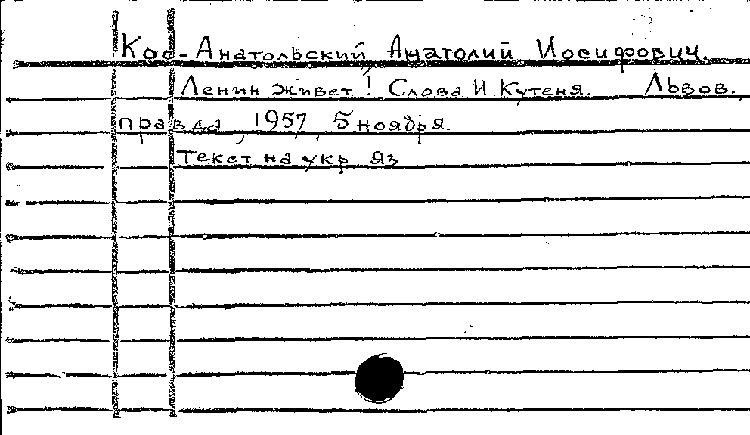 Кос-Анатольский, Анатолий Иосифович.
Ленин живет! Слова И Кутеня. Львов.
правда, 1957, 5 ноября.
Текст на укр яз